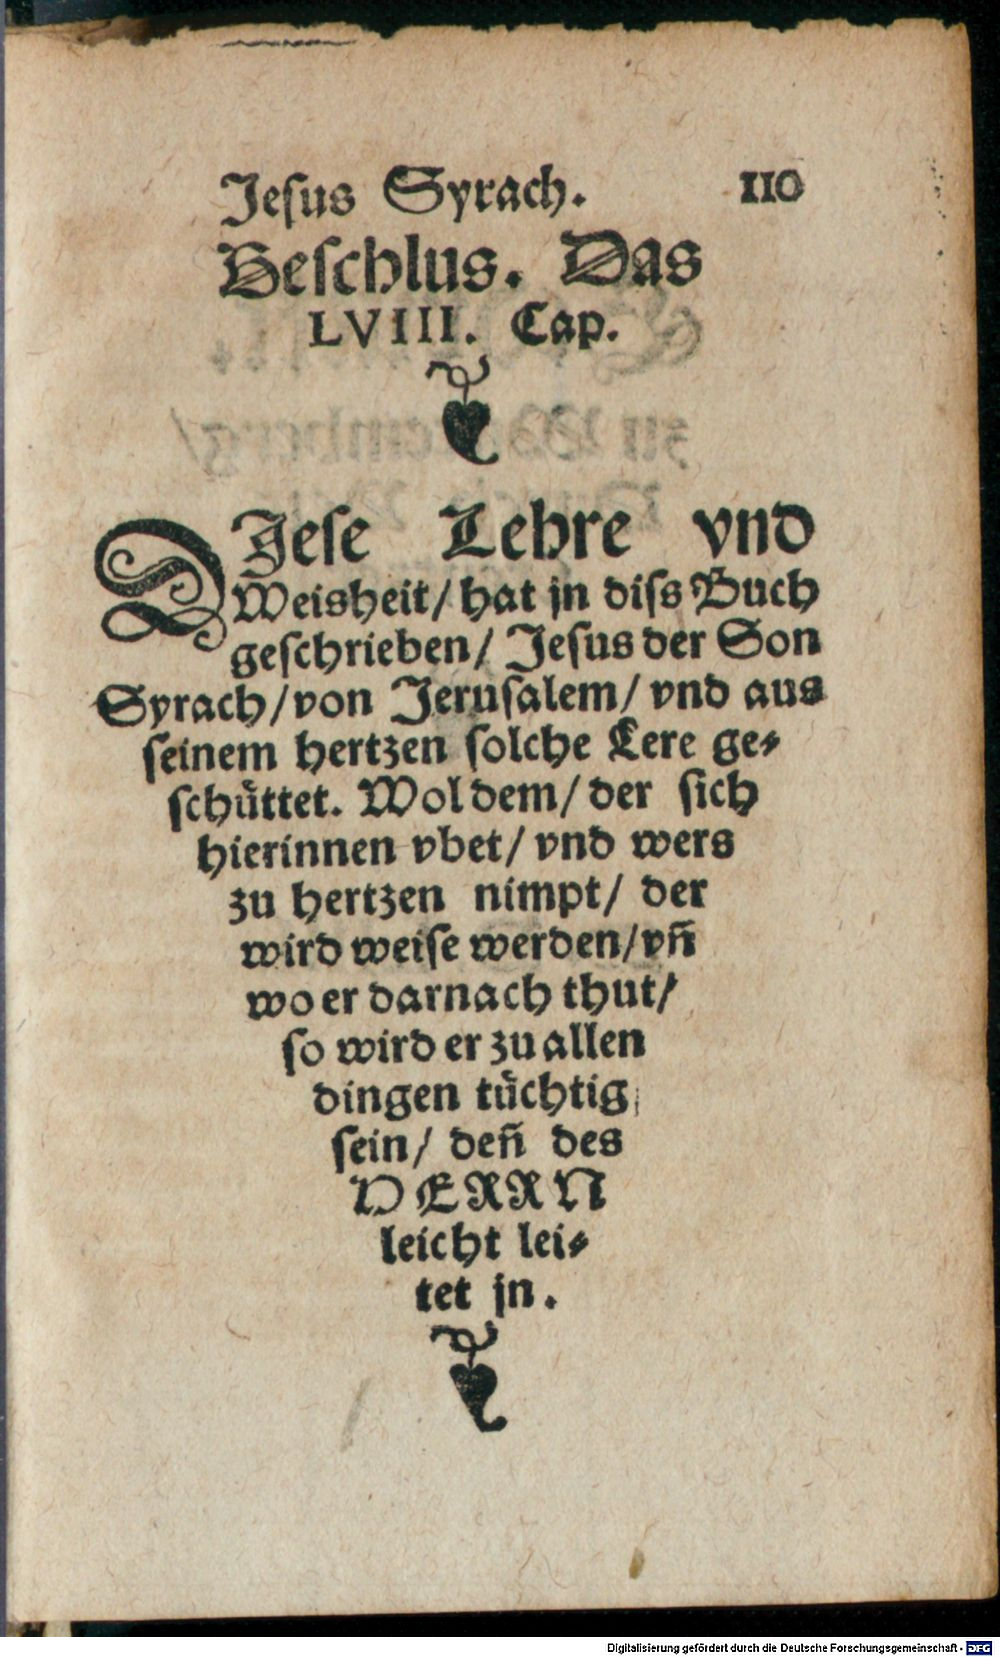 Jeſus Syrach. 110
Beſchlus. Das
LVIII. Cap.
DJeſe Lehre vnd
Weisheit/ hat jn diſs Buch
geſchrieben/ Jeſus der Son
Syrach/ von Jeruſalem/ vnd aus
ſeinem hertzen ſolche Lere ge-
ſchüttet. Wol dem/ der ſich
hierinnen vbet/ vnd wers
zu hertzen nimpt/ der
wird weiſe werden/ vñ
wo er darnach thut/
ſo wird er zu allen
dingen tüchtig
ſein/ deñ des
HERRN
leicht lei-
tet jn.
Digitalisierung gefördert durch die Deutsche Forschungsgemeinschaft - DFG